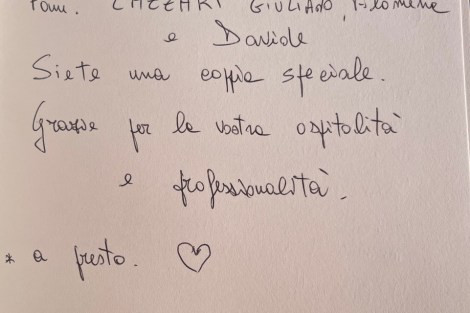 Fam. LAZZARI GIULIANO, Filomena
e Davide
Siete una coppia speciale.
Grazie per la vostra ospitalità
e professionalità.
* a presto. ♡